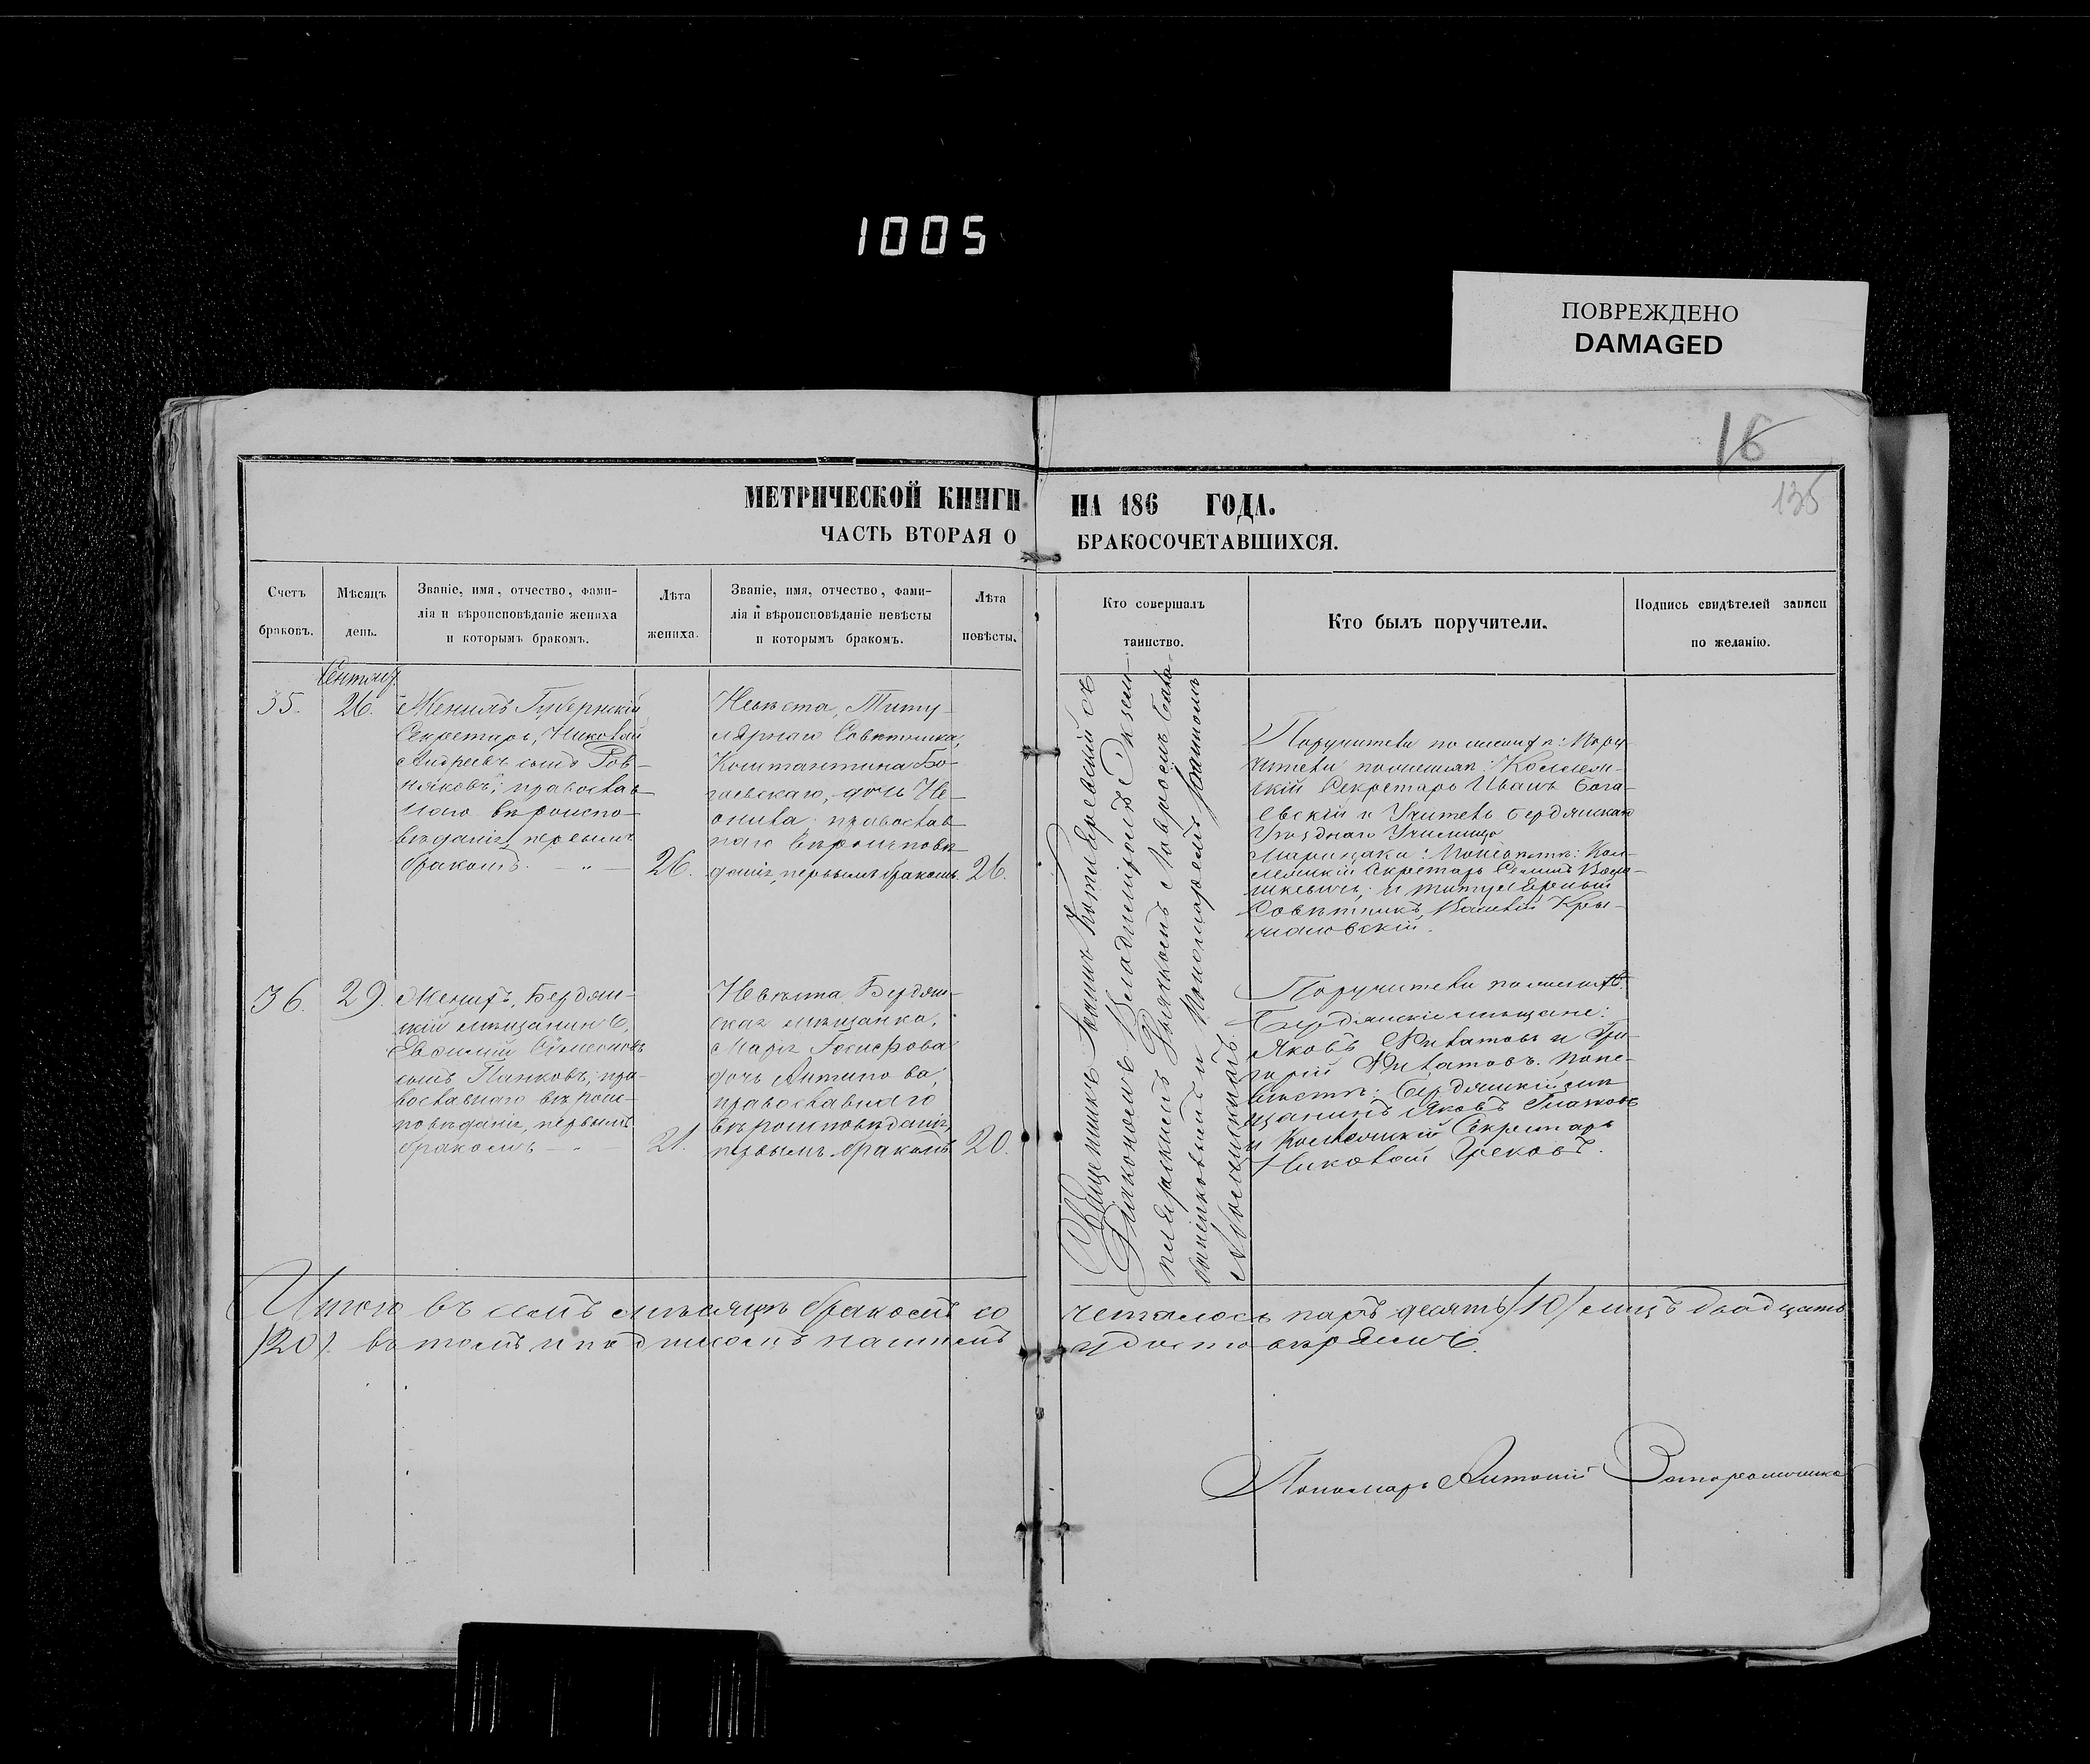 1005
ПОВРЕЖДЕНО
DAMAGED
16
135
МЕТРИЧЕСКОЙ КНИГИ НА 186 ГОДА.
ЧАСТЬ ВТОРАЯ О БРАКОСОЧЕТАВШИХСЯ.
Счетъ
браковъ.
Мѣсяцъ
день.
Званіе, имя, отчество, фами-
лія и вѣроисповѣданіе жениха
и которымъ бракомъ.
Лѣта
жениха.
Званіе, имя, отчество, фами-
лія и вѣроисповѣданіе невѣсты
и которымъ бракомъ.
Лѣта
невѣсты.
Кто совершалъ
таинство.
Кто былъ поручители.
Подпись свидѣтелей записи
по желанію.
Сентяб.
35.
26.
Женихъ Губернскій
Секретарь, Николай
Андреевъ сынъ Ров-
няковъ, православ-
наго вѣроиспо-
вѣданія, первымъ
бракомъ.
26.
Невѣста, Титу-
лярнаго Совѣтника,
Константина Бо-
гаевскаго, дочь
православ-
наго вѣроисповѣ-
данія, первымъ бракомъ.
26.
Священникъ Іоаннъ съ
Діакономъ Владиміромъ
Дьячкомъ Лавровымъ
и Пономаремъ Іоанномъ
Поручители по женихѣ: Пору
чители по женихѣ: Коллеж-
скій Секретарь Иванъ Бога-
евскій и Учитель Бердянскаго
Уѣзднаго Училища
по невѣстѣ: Кол-
лежскій Секретарь
и титулярный
Совѣтникъ, Василій Кры-
жановскій.
36.
29.
Женихъ, Бердян-
скій мѣщанинъ,
Евфимій Симеоновъ
сынъ Панковъ, пра-
вославнаго вѣроис-
повѣданія, первымъ
бракомъ
21.
Невѣста Бердян-
ская мѣщанка,
Марія Іосифова
дочь Антипова,
православнаго
вѣроисповѣданія,
первымъ бракомъ
20.
Поручители по женихѣ:
Бердянскіе мѣщане:
Яковъ Филатовъ и Гри-
горій Филатовъ. по не-
вѣстѣ: Бердянскій мѣ
щанинъ Яковъ
и Коллежскій Секретарь
Николай Грековъ.
Итого въ семъ мѣсяцѣ бракомъ со четалось паръ десять /10/ лицъ двадцать
/20/. въ томъ и подписомъ нашимъ удостовѣряемъ.
Пономарь Антоній